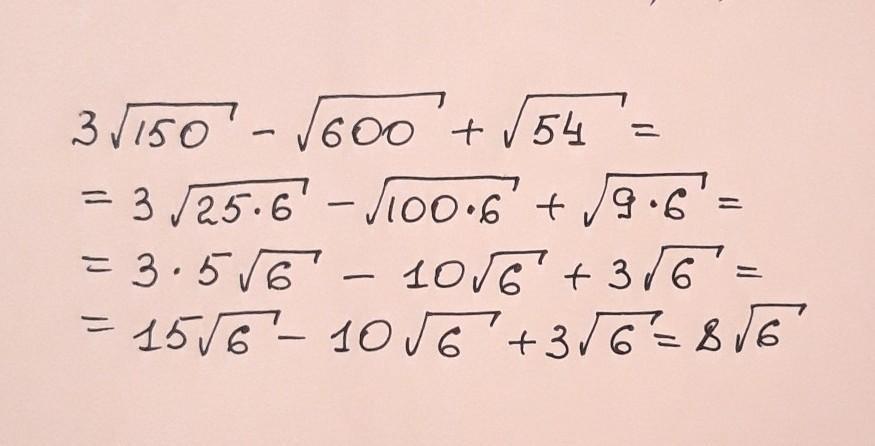 3√150 - √600 + √54 =
= 3√25·6 - √100·6 + √9·6 =
= 3·5√6 - 10√6 + 3√6 =
= 15√6 - 10√6 + 3√6 = 8√6